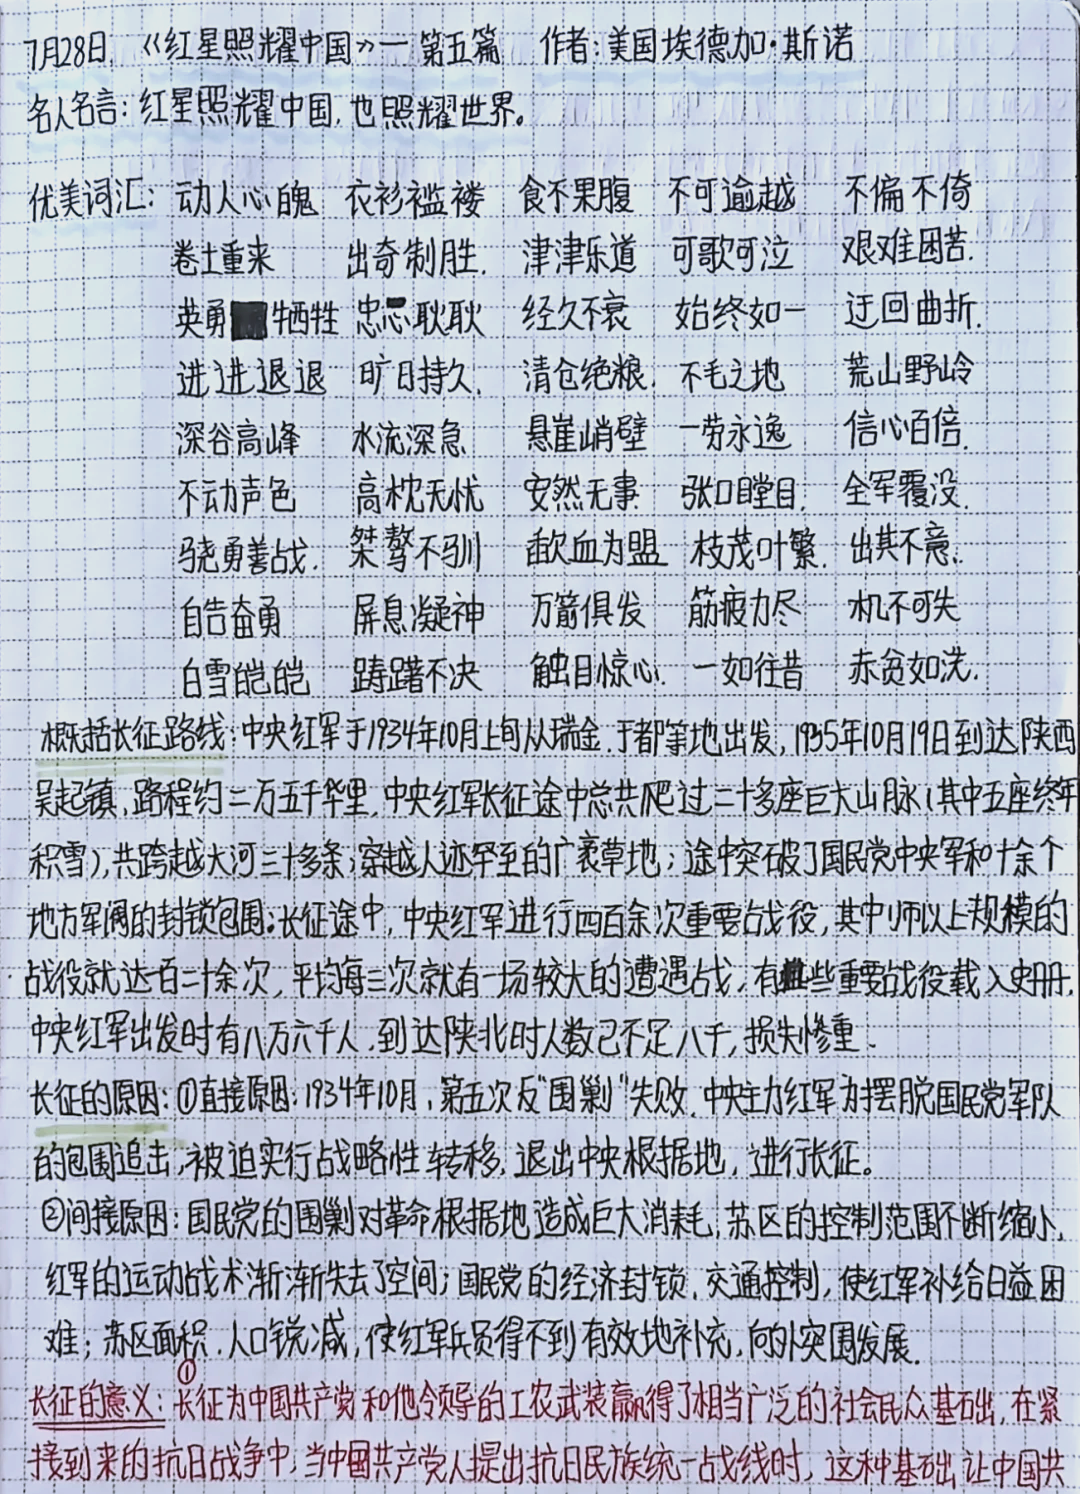 7月28日. 《红星照耀中国》— 第五篇 作者:美国埃德加·斯诺
名人名言:红星照耀中国,也照耀世界。
优美词汇: 动人心魄 衣衫褴褛 食不果腹 不可逾越 不偏不倚
卷土重来 出奇制胜. 津津乐道 可歌可泣 艰难困苦.
英勇牺牲 忠忠耿耿 经久不衰 始终如一 迂回曲折.
进进退退 旷日持久. 清仓绝粮. 不毛之地 荒山野岭
深谷高峰 水流深急 悬崖峭壁 一劳永逸 信心百倍.
不动声色 高枕无忧 安然无事 张口瞠目. 全军覆没.
骁勇善战. 桀骜不驯 歃血为盟 枝茂叶繁. 出其不意.
自告奋勇 屏息凝神 万箭俱发 筋疲力尽 机不可失
白雪皑皑 踌躇不决 触目惊心. 一如往昔 赤贫如洗.
概括长征路线:中央红军于1934年10月上旬从瑞金.于都等地出发,1935年10月19日到达陕西
吴起镇,路程约二万五千华里,中央红军长征途中总共爬过二十多座巨大山脉(其中五座终年
积雪),共跨越大河三十多条;穿越人迹罕至的广袤草地;途中突破了国民党中央军和十余个
地方军阀的封锁包围。长征途中,中央红军进行四百余次重要战役,其中师以上规模的
战役就达一百二十余次,平均每三次就有一场较大的遭遇战,有些重要战役载入史册.
中央红军出发时有八万六千人.到达陕北时人数已不足八千,损失惨重.
长征的原因:①直接原因:1934年10月,第五次反"围剿"失败.中央主力红军为摆脱国民党军队
的包围追击,被迫实行战略性转移.退出中央根据地,进行长征。
②间接原因:国民党的围剿对革命根据地造成巨大消耗,苏区的控制范围不断缩小,
红军的运动战术渐渐失去了空间;国民党的经济封锁.交通控制,使红军补给日益困
难;苏区面积.人口锐减,使红军兵员得不到有效地补充,向外突围发展.
长征的意义:①长征为中国共产党和他领导的工农武装赢得了相当广泛的社会民众基础,在紧
接到来的抗日战争中,当中国共产党人提出抗日民族统一战线时,这种基础让中国共